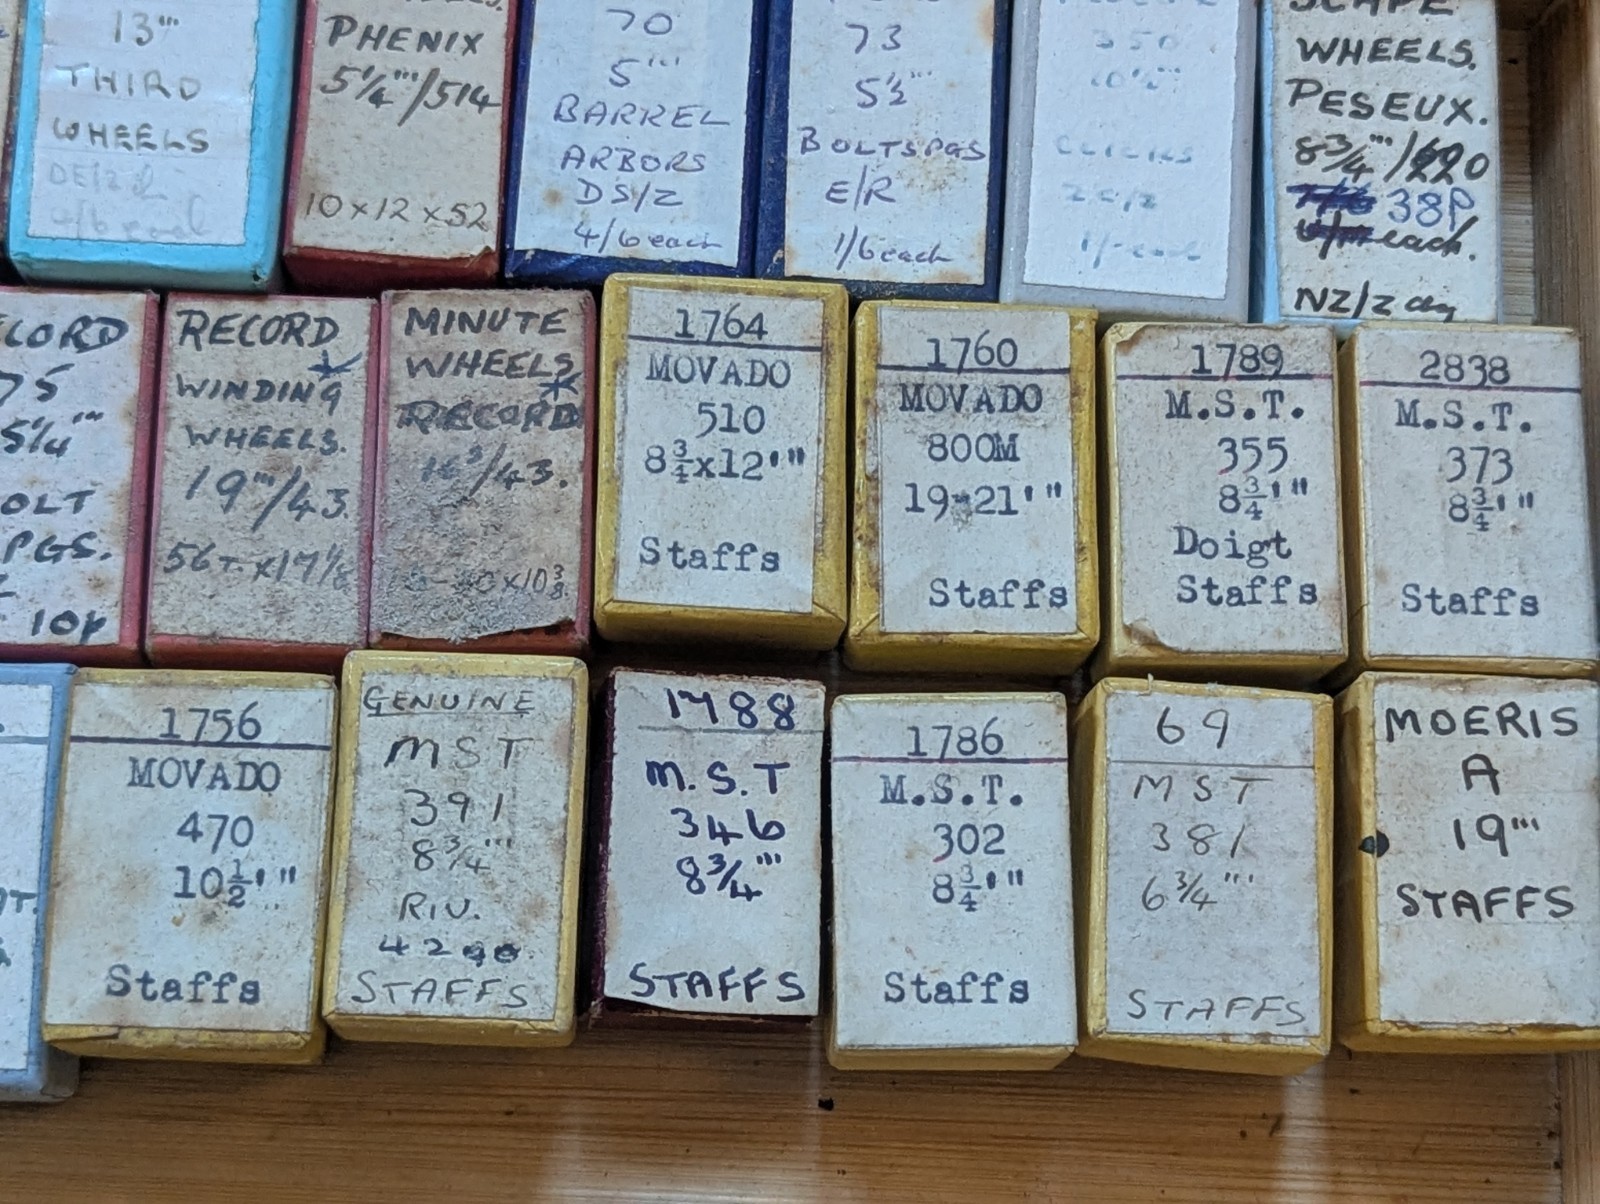 13'''
THIRD
WHEELS
PHENIX
5¼'''/514
10 x 12 x 52
70
5'''
BARREL
ARBORS
DS/2
4/6 each
73
5½'''
BOLTSPGS
E/R
1/6 each
350
10½'''
CLICKS
1/- each
SCAPE
WHEELS.
PESEUX.
8¾'''/
38P
each.
NZ/2
CORD
75
5¼'''
OLT
PGS.
10p
RECORD
WINDING
WHEELS.
19'''/43.
56T. x 17⅛
MINUTE
WHEELS
RECORD
/43.
x 10⅜
1764
MOVADO
510
8¾x12'"
Staffs
1760
MOVADO
800M
19-21'"
Staffs
1789
M.S.T.
355
8¾'"
Doigt
Staffs
2838
M.S.T.
373
8¾'"
Staffs
1756
MOVADO
470
10½'"
Staffs
GENUINE
MST
391
8¾'''
RIV.
STAFFS
1788
M.S.T
346
8¾'''
STAFFS
1786
M.S.T.
302
8¾'"
Staffs
69
MST
381
6¾'''
STAFFS
MOERIS
A
19'''
STAFFS